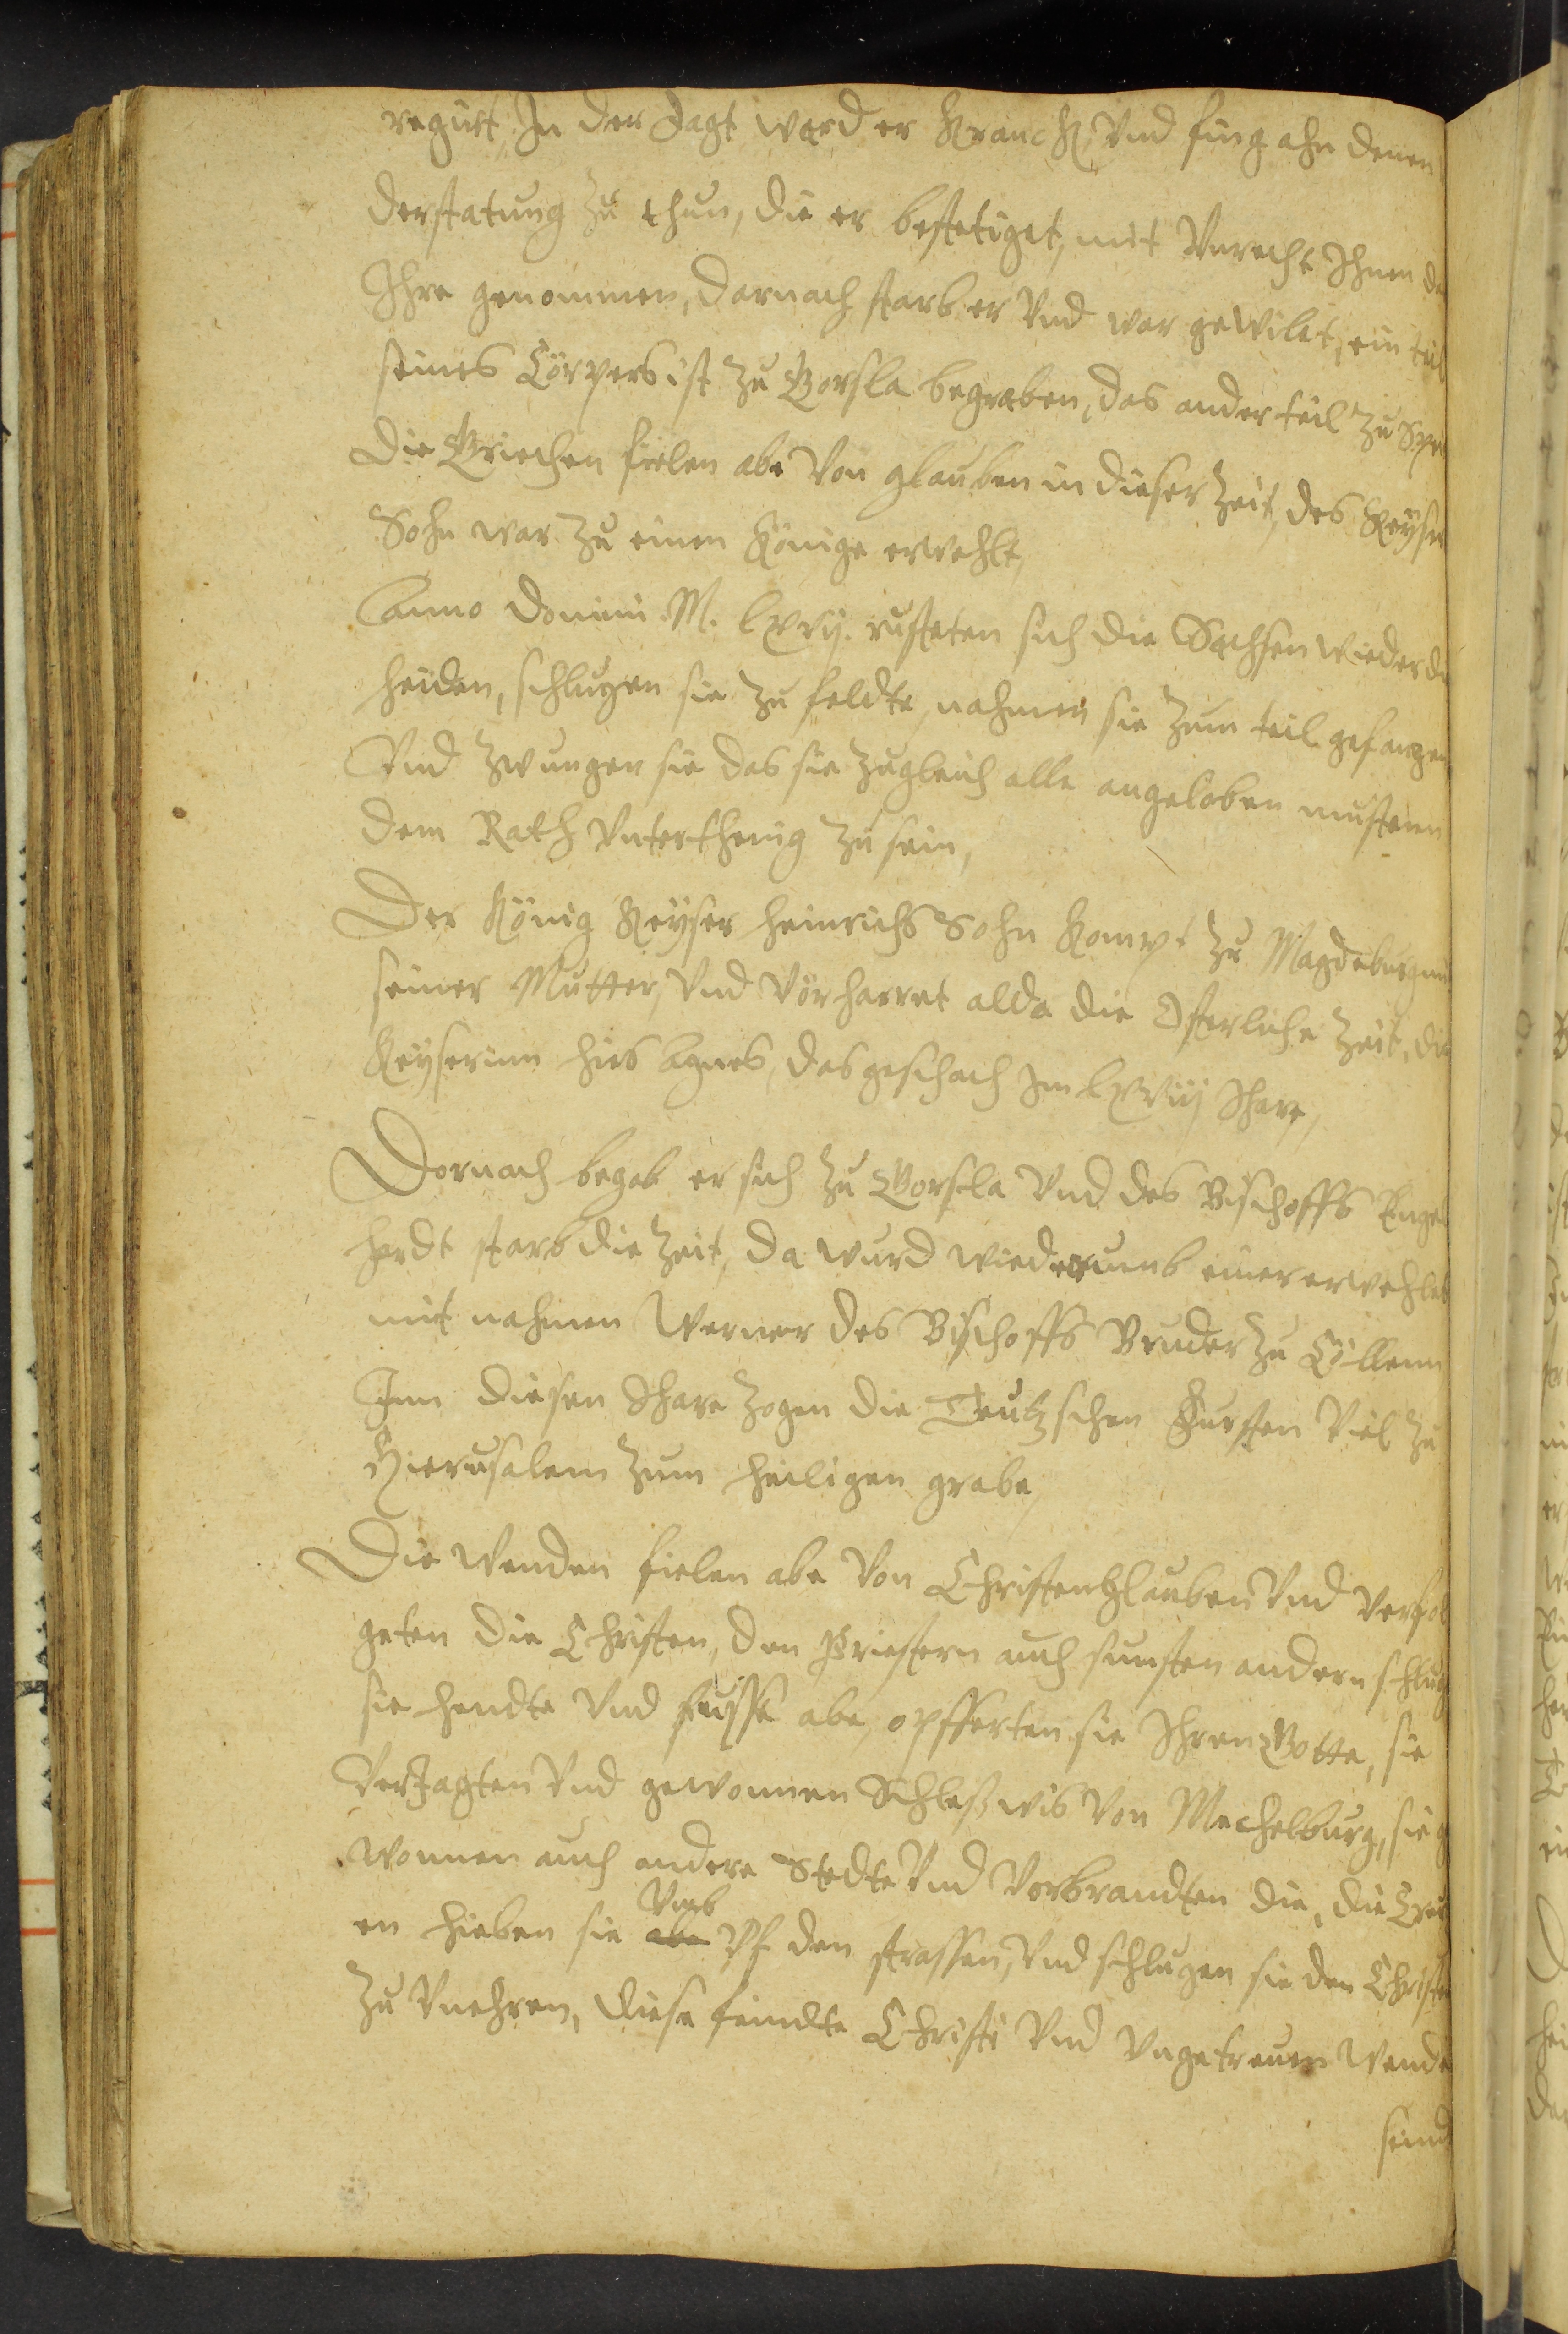 regirt, In der Jagt ward er Kranck, Vnd fing ahn denen
derstatung zu thun, die er bestetiget, mit Vnrecht Ihnen da
Ihre genommen, darnach starb er Vnd war gewilet, ein teil
seines Cörpers ist zu Gorsla begraben, das ander teil zu Spe
die Griechen fielen abe Von glauben in dieser Zeit, des Keyser
Sohn war zu einen Könige erwehlt,
Anno domini M. lxvij. rusteten sich die Sachsen wieder di
heiden, schlugen sie zu felde, nahmen sie zum teil gefangen
Vnd zwungen sie das sie zugleich alle angeloben mustenn
dem Rath Vnterthenig zu sein,
Der König Keyser heinrichs Sohn Kompt zu Magdeburg mit
seiner Mutter, Vnd Vorharret alda die Osterliche Zeit, die
Keyserinn hies Agnes, das geschach Im lxviij Ihare,
Dornach begab er sich zu Gorsla Vnd des Bischoffs Engel
hardt starb die Zeit, da wurd wiederumb einer erwehlet
mit nahmen Werner des Bischoffs Bruder zu Cöllenn
Inn diesen Ihare zogen die Teutzschen Fursten Viel zu
Hierusalem zum heiligen grabe,
Die Wenden fielen abe Von Christenglauben Vnd verfol
geten die Christen, den Priestern auch sunsten andern schlug
sie hendte Vnd fuysse abe, opfferten sie Ihren Gotte, sie
VerJagten Vnd gewonnen Schleßwis Von Mechelburg, sie g
wonnen auch andere Stedte Vnd Vorbrandten die, die Creu
en hieben sie abe Vmb Vf den strassen, Vnd schlugen sie den Christen
zu Vnehren, diese feindte Christi Vnd Vngetreuen Wende
seind